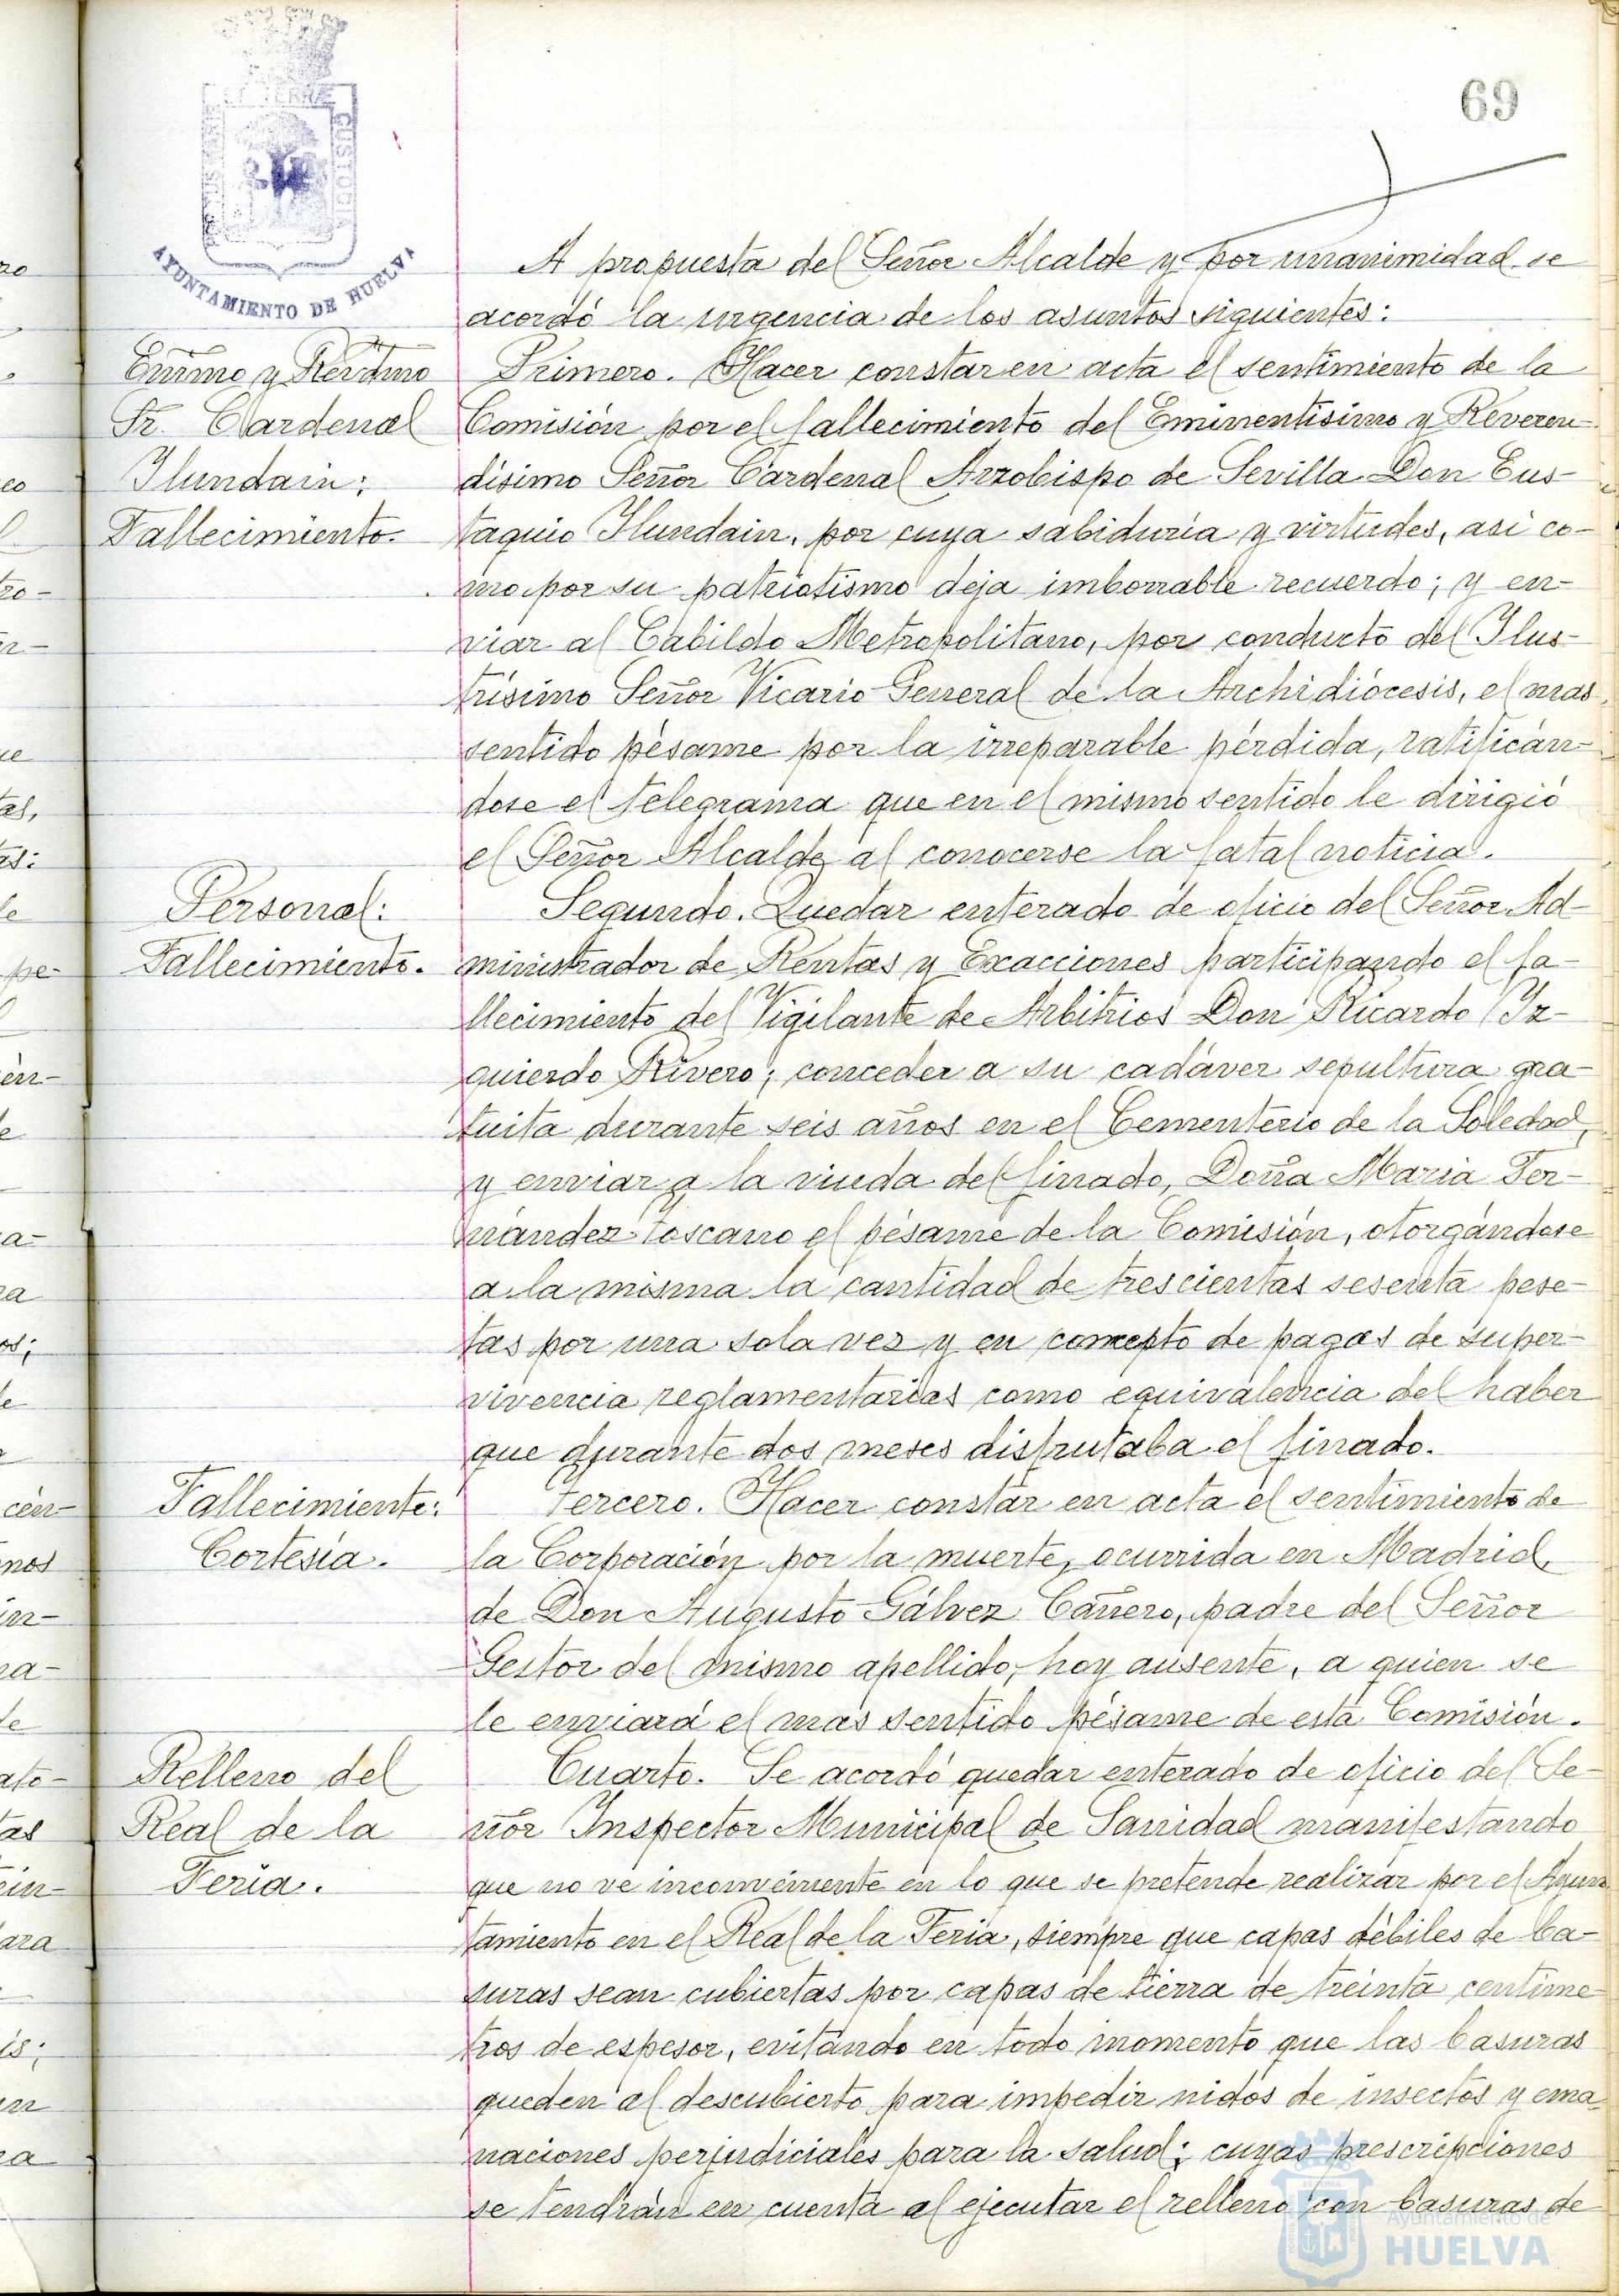 69
AYUNTAMIENTO DE HUELVA
A propuesta del Señor Alcalde y por unanimidad se
acordó la urgencia de los asuntos siguientes:
Emmo y Revdmo
Sr. Cardenal
Ilundain:
Fallecimiento.
Primero. Hacer constar en acta el sentimiento de la
Comisión por el fallecimiento del Eminentísimo y Reveren-
dísimo Señor Cardenal Arzobispo de Sevilla Don Eus-
taquio Ilundain, por cuya sabiduría y virtudes, asi co-
mo por su patriotismo deja imborrable recuerdo; y en-
viar al Cabildo Metropolitano, por conducto del Ilus-
trísimo Señor Vicario General de la Archidiócesis, el mas
sentido pésame por la irreparable pérdida, ratificán-
dose el telegrama que en el mismo sentido le dirigió
el Señor Alcalde al conocerse la fatal noticia.
Personal:
Fallecimiento.
Segundo. Quedar enterado de oficio del Señor Ad-
ministrador de Rentas y Exacciones participando el fa-
llecimiento del Vigilante de Arbitrios Don Ricardo Iz-
quierdo Rivero; conceder a su cadáver sepultura gra-
tuita durante seis años en el Cementerio de la Soledad,
y enviar a la viuda del finado, Doña Maria Fer-
nández Toscano el pésame de la Comisión, otorgándose
a la misma la cantidad de trescientas sesenta pese-
tas por una sola vez y en concepto de pagas de super-
vivencia reglamentarias como equivalencia del haber
que durante dos meses disfrutaba el finado.
Fallecimiento:
Cortesía.
Tercero. Hacer constar en acta el sentimiento de
la Corporación por la muerte, ocurrida en Madrid,
de Don Augusto Gálvez Cañero, padre del Señor
Gestor del mismo apellido, hoy ausente, a quien se
le enviará el mas sentido pésame de esta Comisión.
Relleno del
Real de la
Feria.
Cuarto. Se acordó quedar enterado de oficio del Se-
ñor Inspector Municipal de Sanidad manifestando
que no ve inconveniente en lo que se pretende realizar por el Ayun
tamiento en el Real de la Feria, siempre que capas débiles de ba-
suras sean cubiertas por capas de tierra de treinta centíme-
tros de espesor, evitando en todo momento que las basuras
queden al descubierto para impedir nidos de insectos y ema-
naciones perjudiciales para la salud; cuyas prescripciones
se tendrán en cuenta al ejecutar el relleno con basuras de
Ayuntamiento de
HUELVA